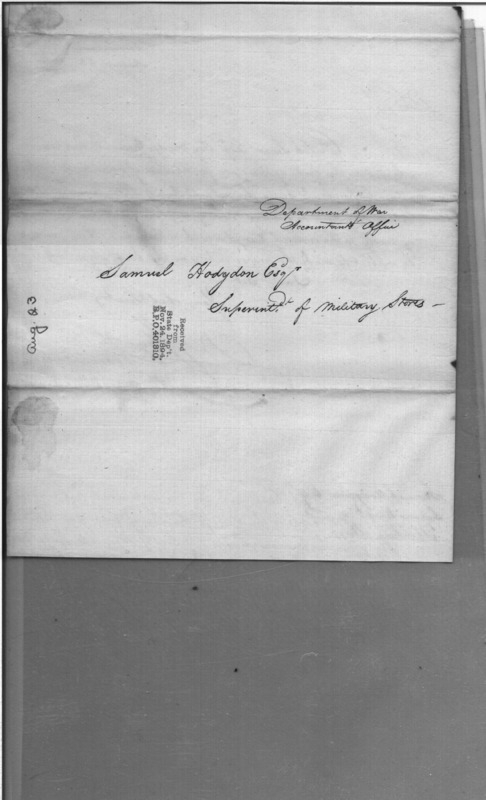 Department of War
Accountant Office
Samuel Hodgdon Esqr
Superintdt of Military Stores —
Aug. 23
Received
from
State Dep't.
Nov. 24, 1894,
R.P.O. 401810.